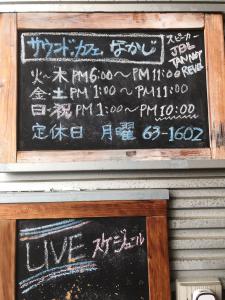 サウンド・カフェ なかじ
スピーカー
JBL
TANNOY
REVEL
火～木 PM 6:00～PM 11:00
金・土 PM 1:00～PM 11:00
日・祝 PM 1:00～PM 10:00
定休日 月曜 63-1602
LIVE スケジュール